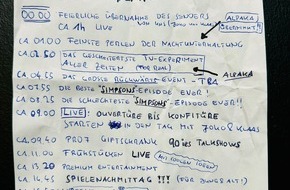 00:00 FEIERLICHE ÜBERNAHME DES SENDERS
CA 1H LIVE
ALPAKA
CA 01.00 FEINSTE PERLEN DER NACHTUNTERHALTUNG
CA 02.50 DAS GESCHEITERTSTE TV-EXPERIMENT
ALLER ZEITEN
CA 04.55 DAS GROSSE RÜCKWÄRTS-EVENT - TRA
ALPAKA
CA 07.55 DIE BESTE "SIMPSONS" EPISODE EVER!
CA 08.25 DIE SCHLECHTESTE "SIMPSONS"-EPISODE EVER!!
CA 09.00 LIVE: OUVERTÜRE BIS KONFITÜRE
STARTEN IN DEN TAG MIT JOKO & KLAAS
CA 09.40 PROF GIFTSCHRANK 90IES TALKSHOWS
CA 11.00 FRÜHSTÜCKEN LIVE
CA 13.20 PREMIUM ENTERTAINMENT
CA 14.45 SPIELENACHMITTAG!!! (FÜR JUNG & ALT!)